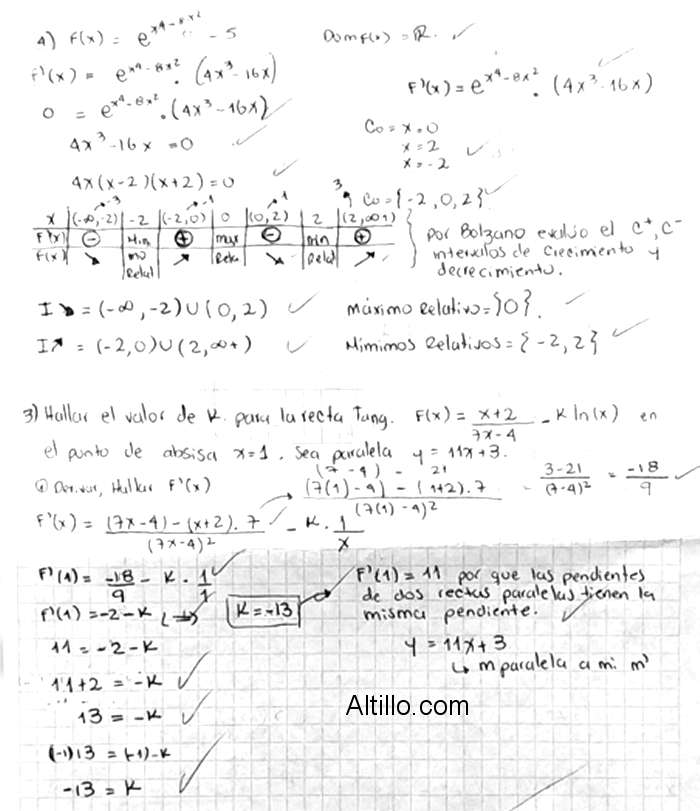 4) F(x) = e^(x⁴-8x²) - 5 Dom F(x) = ℝ. ✓
F'(x) = e^(x⁴-8x²) . (4x³-16x) F'(x) = e^(x⁴-8x²) . (4x³-16x)
0 = e^(x⁴-8x²) . (4x³-16x)
4x³-16x = 0 ✓ C₀ = x = 0
x = 2 ✓
x = -2
4x(x-2)(x+2) = 0 ✓
C₀ = {-2, 0, 2} ✓
-3 -1 1 3
x | (-∞,-2) | -2 | (-2,0) | 0 | (0,2) | 2 | (2,∞+)
F'(x) | ⊖ | Míni | ⊕ | max | ⊖ | min | ⊕
F(x) | ↘ | mo Relat | ↗ | Rela | ↘ | Relat | ↗
por Bolzano evalúo el C⁺, C⁻
intervalos de crecimiento y
decrecimiento.
I↘ = (-∞, -2) ∪ (0, 2) ✓ Máximo Relativo = {0}. ✓
I↗ = (-2,0) ∪ (2,∞+) ✓ Mimimos Relativos = {-2, 2} ✓
3) Hallar el valor de K. para la recta Tang. F(x) = (x+2)/(7x-4) - K ln(x) en
el punto de absisa x=1. sea paralela y = 11x+3.
Derivar, Hallar F'(x)
(7-4) - 21
((7(1)-4) - (1+2).7)/(7(1)-4)² = (3-21)/(7-4)² = -18/9 ✓
F'(x) = ((7x-4) - (x+2).7)/(7x-4)² - K . 1/x
F'(1) = -18/9 - K . 1/1 ✓
F'(1) = -2 - K
K = -13
F'(1) = 11 por que las pendientes
de dos rectas paralelas tienen la
misma pendiente. ✓
11 = -2 - K
y = 11x+3
↳ m paralela a mi m
11+2 = -K ✓
13 = -K ✓
(-1)13 = (-1)-K
-13 = K ✓
Altillo.com